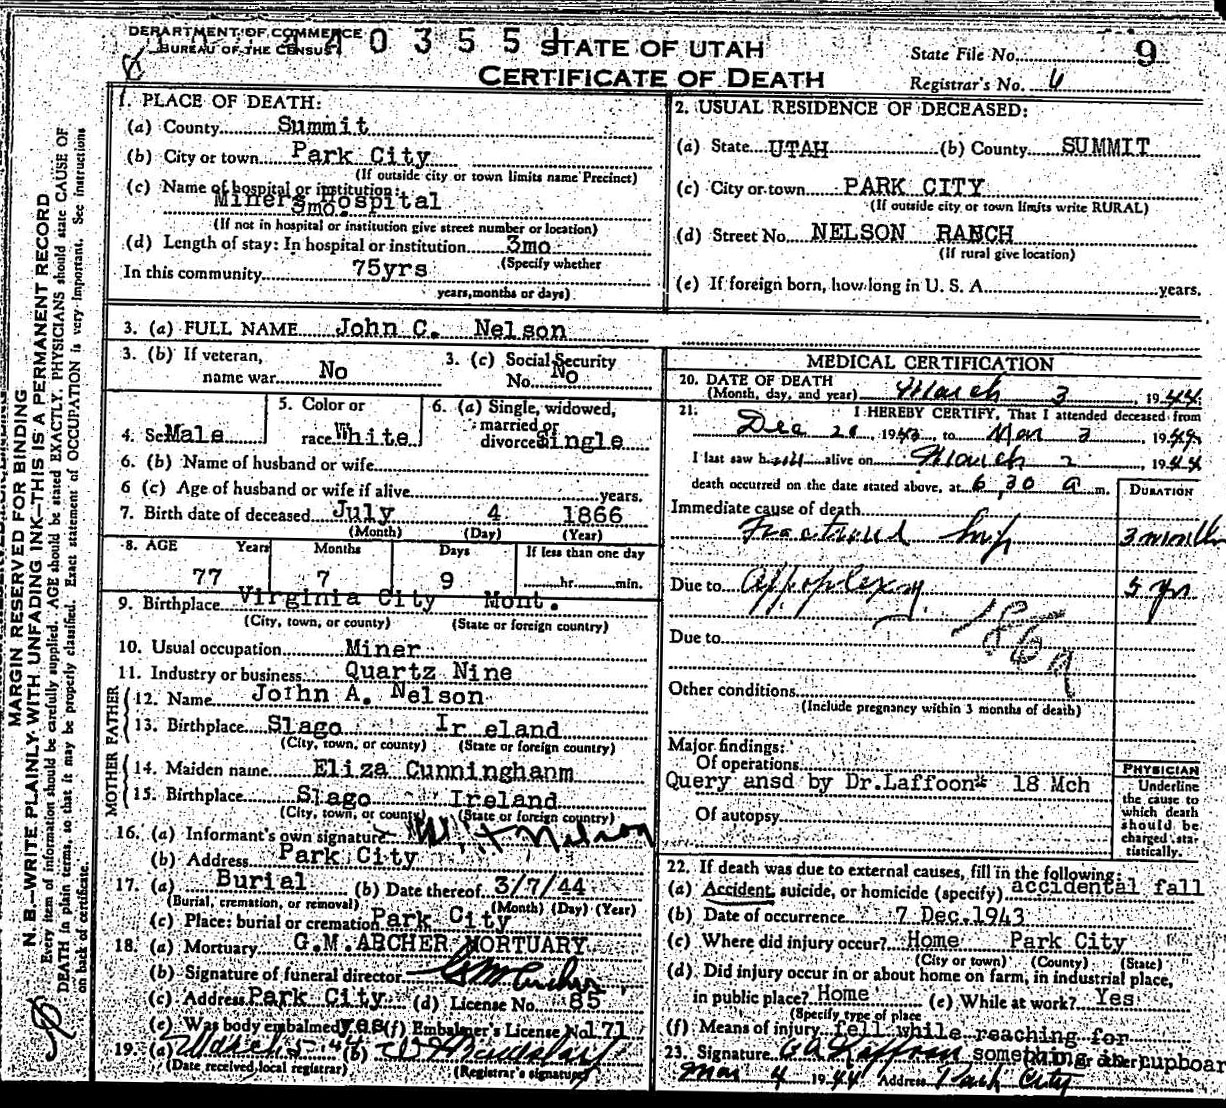 DEPARTMENT OF COMMERCE
BUREAU OF THE CENSUS
0 3 5 5
STATE OF UTAH
CERTIFICATE OF DEATH
State File No. 9
Registrar's No.
MARGIN RESERVED FOR BINDING
N. B.—WRITE PLAINLY WITH UNFADING INK—THIS IS A PERMANENT RECORD
Every item of information should be carefully supplied. AGE should be stated EXACTLY. PHYSICIANS should state CAUSE OF
DEATH in plain terms, so that it may be properly classified. Exact statement of OCCUPATION is very important. See instructions
on back of certificate.
1. PLACE OF DEATH:
(a) County Summit
(b) City or town Park City
(If outside city or town limits name Precinct)
(c) Name of hospital or institution:
Miners Hospital
3mo.
(If not in hospital or institution give street number or location)
(d) Length of stay: In hospital or institution 3mo
(Specify whether
In this community 75yrs
years, months or days)
2. USUAL RESIDENCE OF DECEASED:
(a) State UTAH (b) County SUMMIT
(c) City or town PARK CITY
(If outside city or town limits write RURAL)
(d) Street No. NELSON RANCH
(If rural give location)
(e) If foreign born, how long in U. S. A. years.
3. (a) FULL NAME John C. Nelson
3. (b) If veteran, name war No
3. (c) Social Security No. No
4. Sex Male
5. Color or race White
6. (a) Single, widowed, married or divorced Single
6. (b) Name of husband or wife
6 (c) Age of husband or wife if alive years.
7. Birth date of deceased July 4 1866
(Month) (Day) (Year)
8. AGE Years Months Days If less than one day
77 7 9 hr. min.
9. Birthplace Virginia City Mont.
(City, town, or county) (State or foreign country)
10. Usual occupation Miner
11. Industry or business Quartz Nine
FATHER
12. Name John A. Nelson
13. Birthplace Slago Ir eland
(City, town, or county) (State or foreign country)
MOTHER
14. Maiden name Eliza Cunninghanm
15. Birthplace Slago Ireland
(City, town, or county) (State or foreign country)
16. (a) Informant's own signature Nelson
(b) Address Park City
17. (a) Burial (b) Date thereof 3/7/44
(Burial, cremation, or removal) (Month) (Day) (Year)
(c) Place: burial or cremation Park City
18. (a) Mortuary G.M.ARCHER MORTUARY
(b) Signature of funeral director GM Archer
(c) Address Park City (d) License No. 85
(e) Was body embalmed yes (f) Embalmer's License No. 171
19. (a) March 5 44 (b)
(Date received local registrar) (Registrar's signature)
MEDICAL CERTIFICATION
20. DATE OF DEATH
(Month, day, and year) March 3, 1944
21. I HEREBY CERTIFY, That I attended deceased from
Dec 1943 to Mar 3, 1944
I last saw him alive on March 2, 1944
death occurred on the date stated above, at 6,30 a m.
DURATION
Immediate cause of death
Fractured hip 3 months
Due to Appoplexy 5 yrs
186a
Due to
Other conditions
(Include pregnancy within 3 months of death)
Major findings:
Of operations
Query ansd by Dr.Laffoon* 18 Mch
Of autopsy
PHYSICIAN
Underline
the cause to
which death
should be
charged sta-
tistically.
22. If death was due to external causes, fill in the following:
(a) Accident, suicide, or homicide (specify) accidental fall
(b) Date of occurrence 7 Dec.1943
(c) Where did injury occur? Home Park City
(City or town) (County) (State)
(d) Did injury occur in or about home on farm, in industrial place,
in public place? Home (e) While at work? Yes
(Specify type of place
(f) Means of injury fell while reaching for
something in cupboar
23. Signature
Mar 4 1944 Address Park City